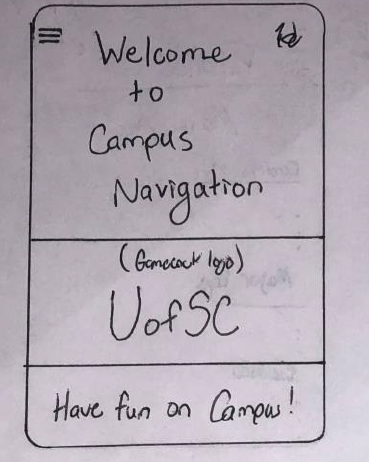 Welcome
to
Campus
Navigation
(Gamecock logo)
UofSC
Have fun on Campus!